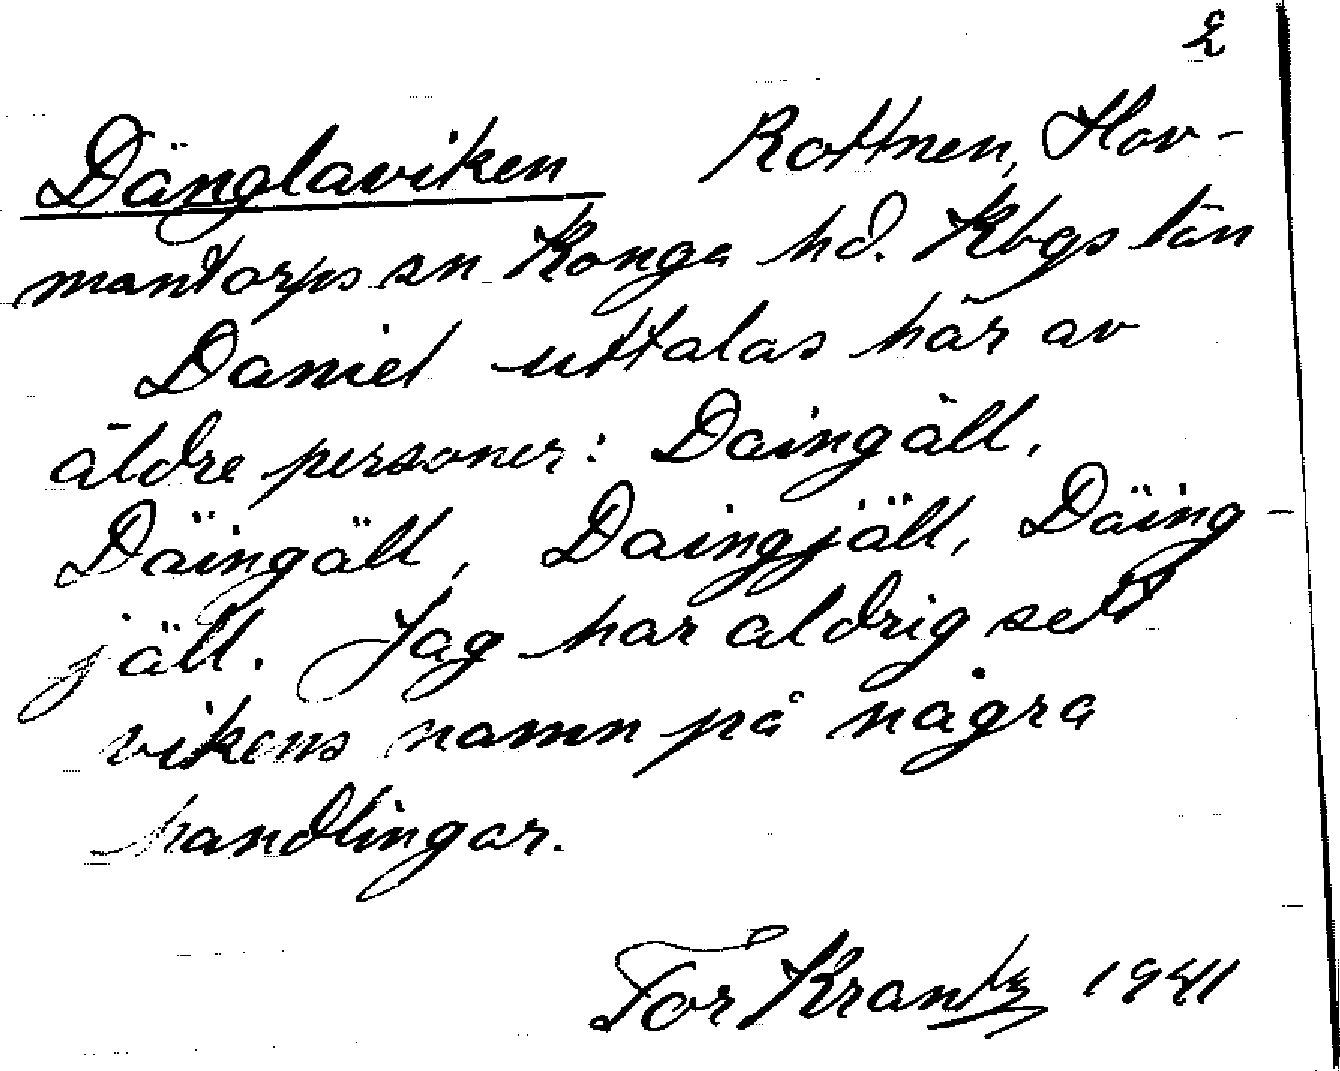 2
Dänglaviken Rottnen, Hov-
mantorps sn Konga hd. Kbgs län
Daniel uttalas här av
äldre personer: Daingäll,
Däingäll, Daingjäll, Däing-
jäll. Jag har aldrig sett
vikens namn på några
handlingar.
Tor Krantz 1941